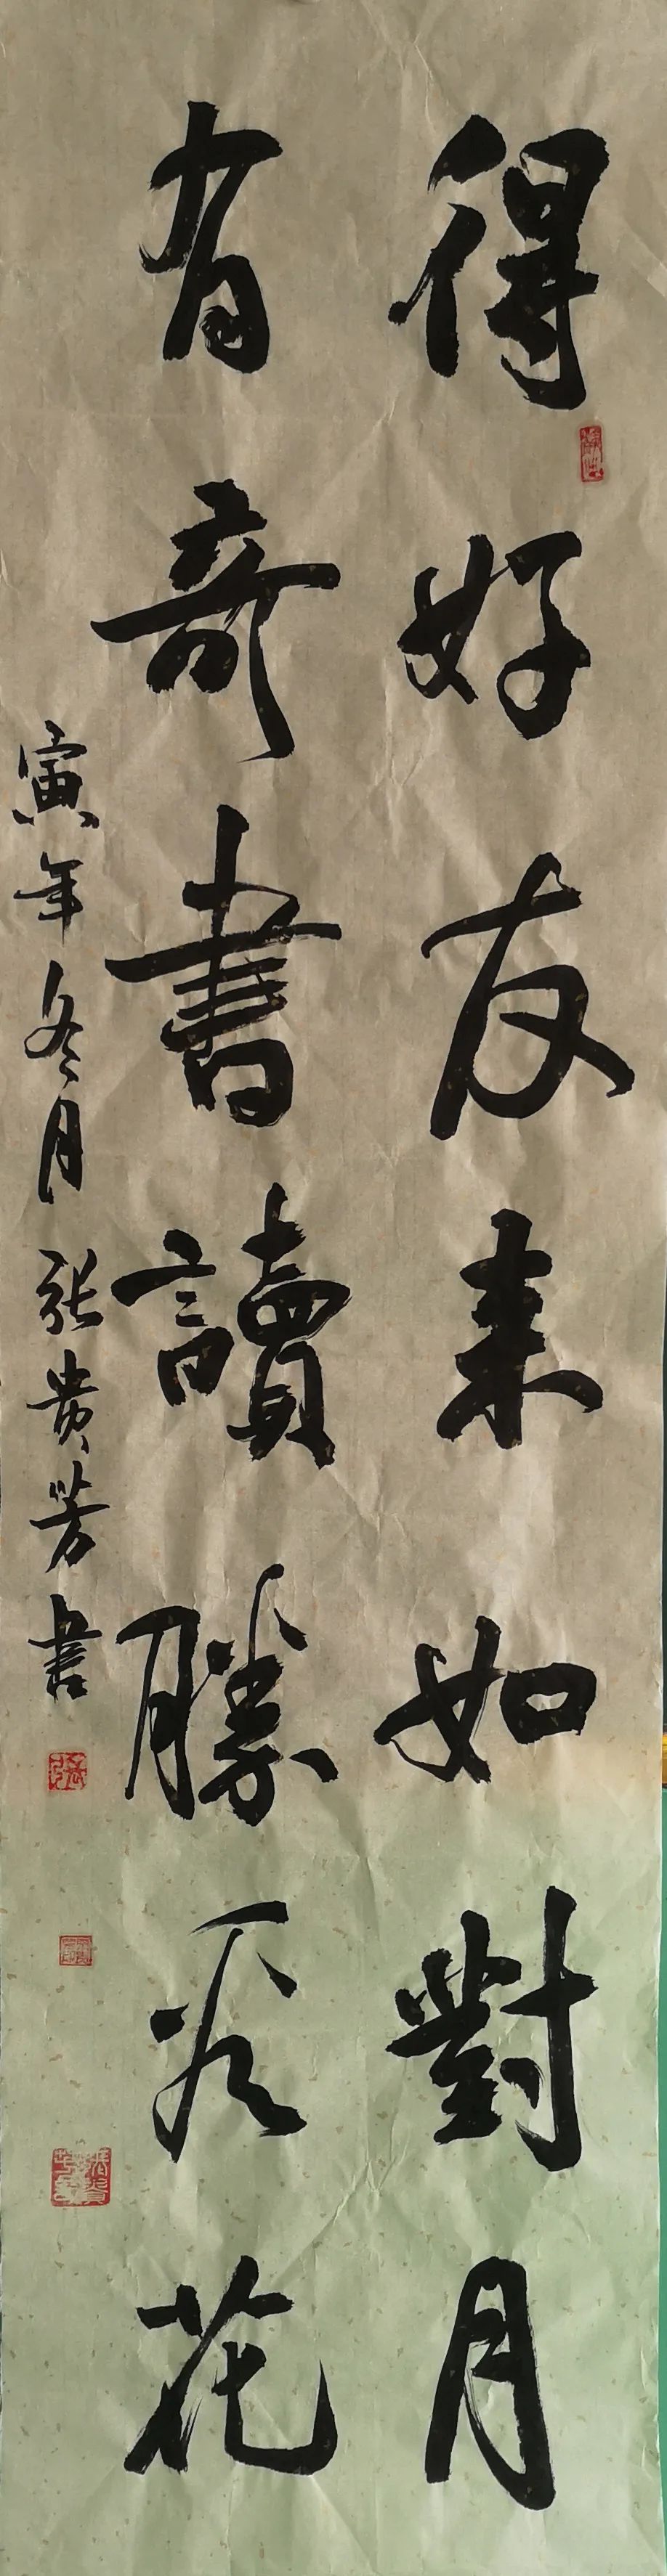 得好友来如對月
有奇書讀勝看花
寅年冬月 张贵芳书
張